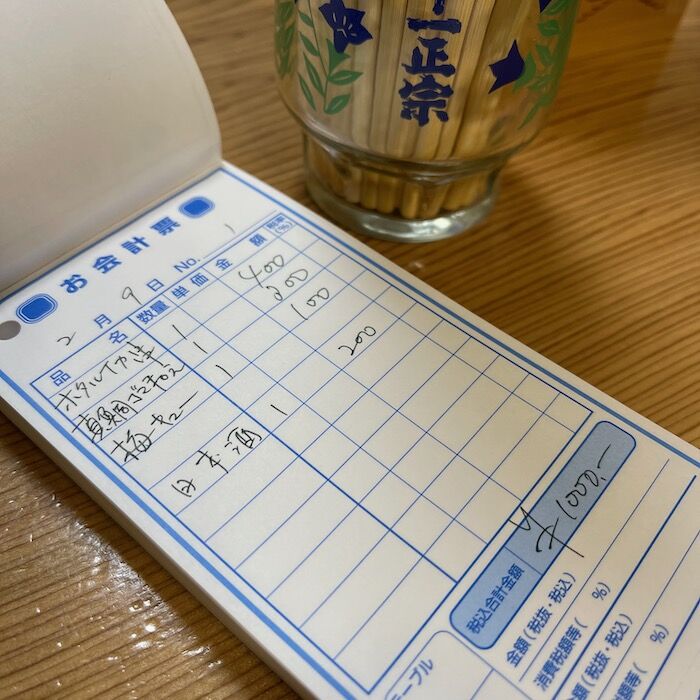 一正宗
お会計票
2月9日 No. 1
品名 数量 単価 金額 税率(%)
ホタルイカ 1 400
真鯛ごまあえ 1 300
梅キュー 1 100
日本酒 1 200
税込合計金額 ¥1000.-
金額(税抜・税込)
消費税額等( %)
額(税抜・税込)
額等( %)
テーブル